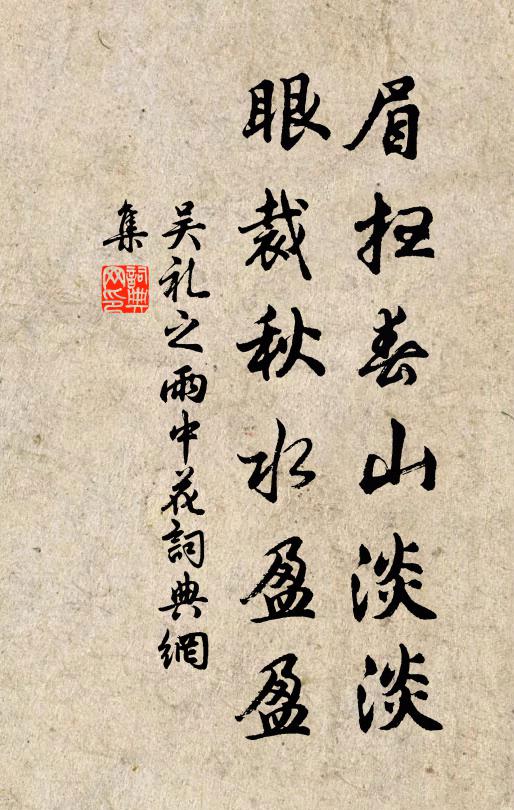 眉扫春山淡淡
眼裁秋水盈盈
吴礼之雨中花詞典網
集
詞典网印